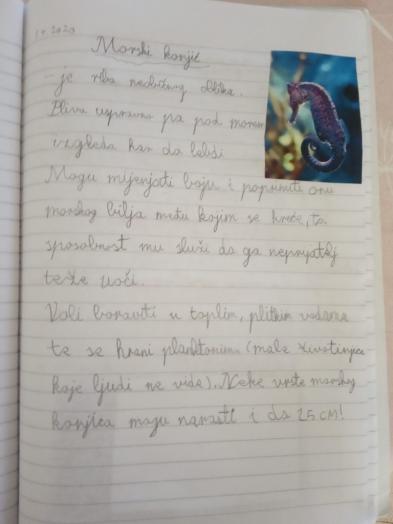 2020
Morski konjic
- je riba neobičnog oblika.
Pliva uspravno pa pod morem
izgleda kao da lebdi
Mogu mijenjati boju i poprimiti onu
morskog bilja među kojim se kreće, ta
sposobnost mu služi da ga neprijatelj
teže uoči.
Voli boraviti u toplim, plitkim vodama
te se hrani planktonima (male životinjice
koje ljudi ne vide). Neke vrste morskog
konjica mogu narasti i do 25 cm!